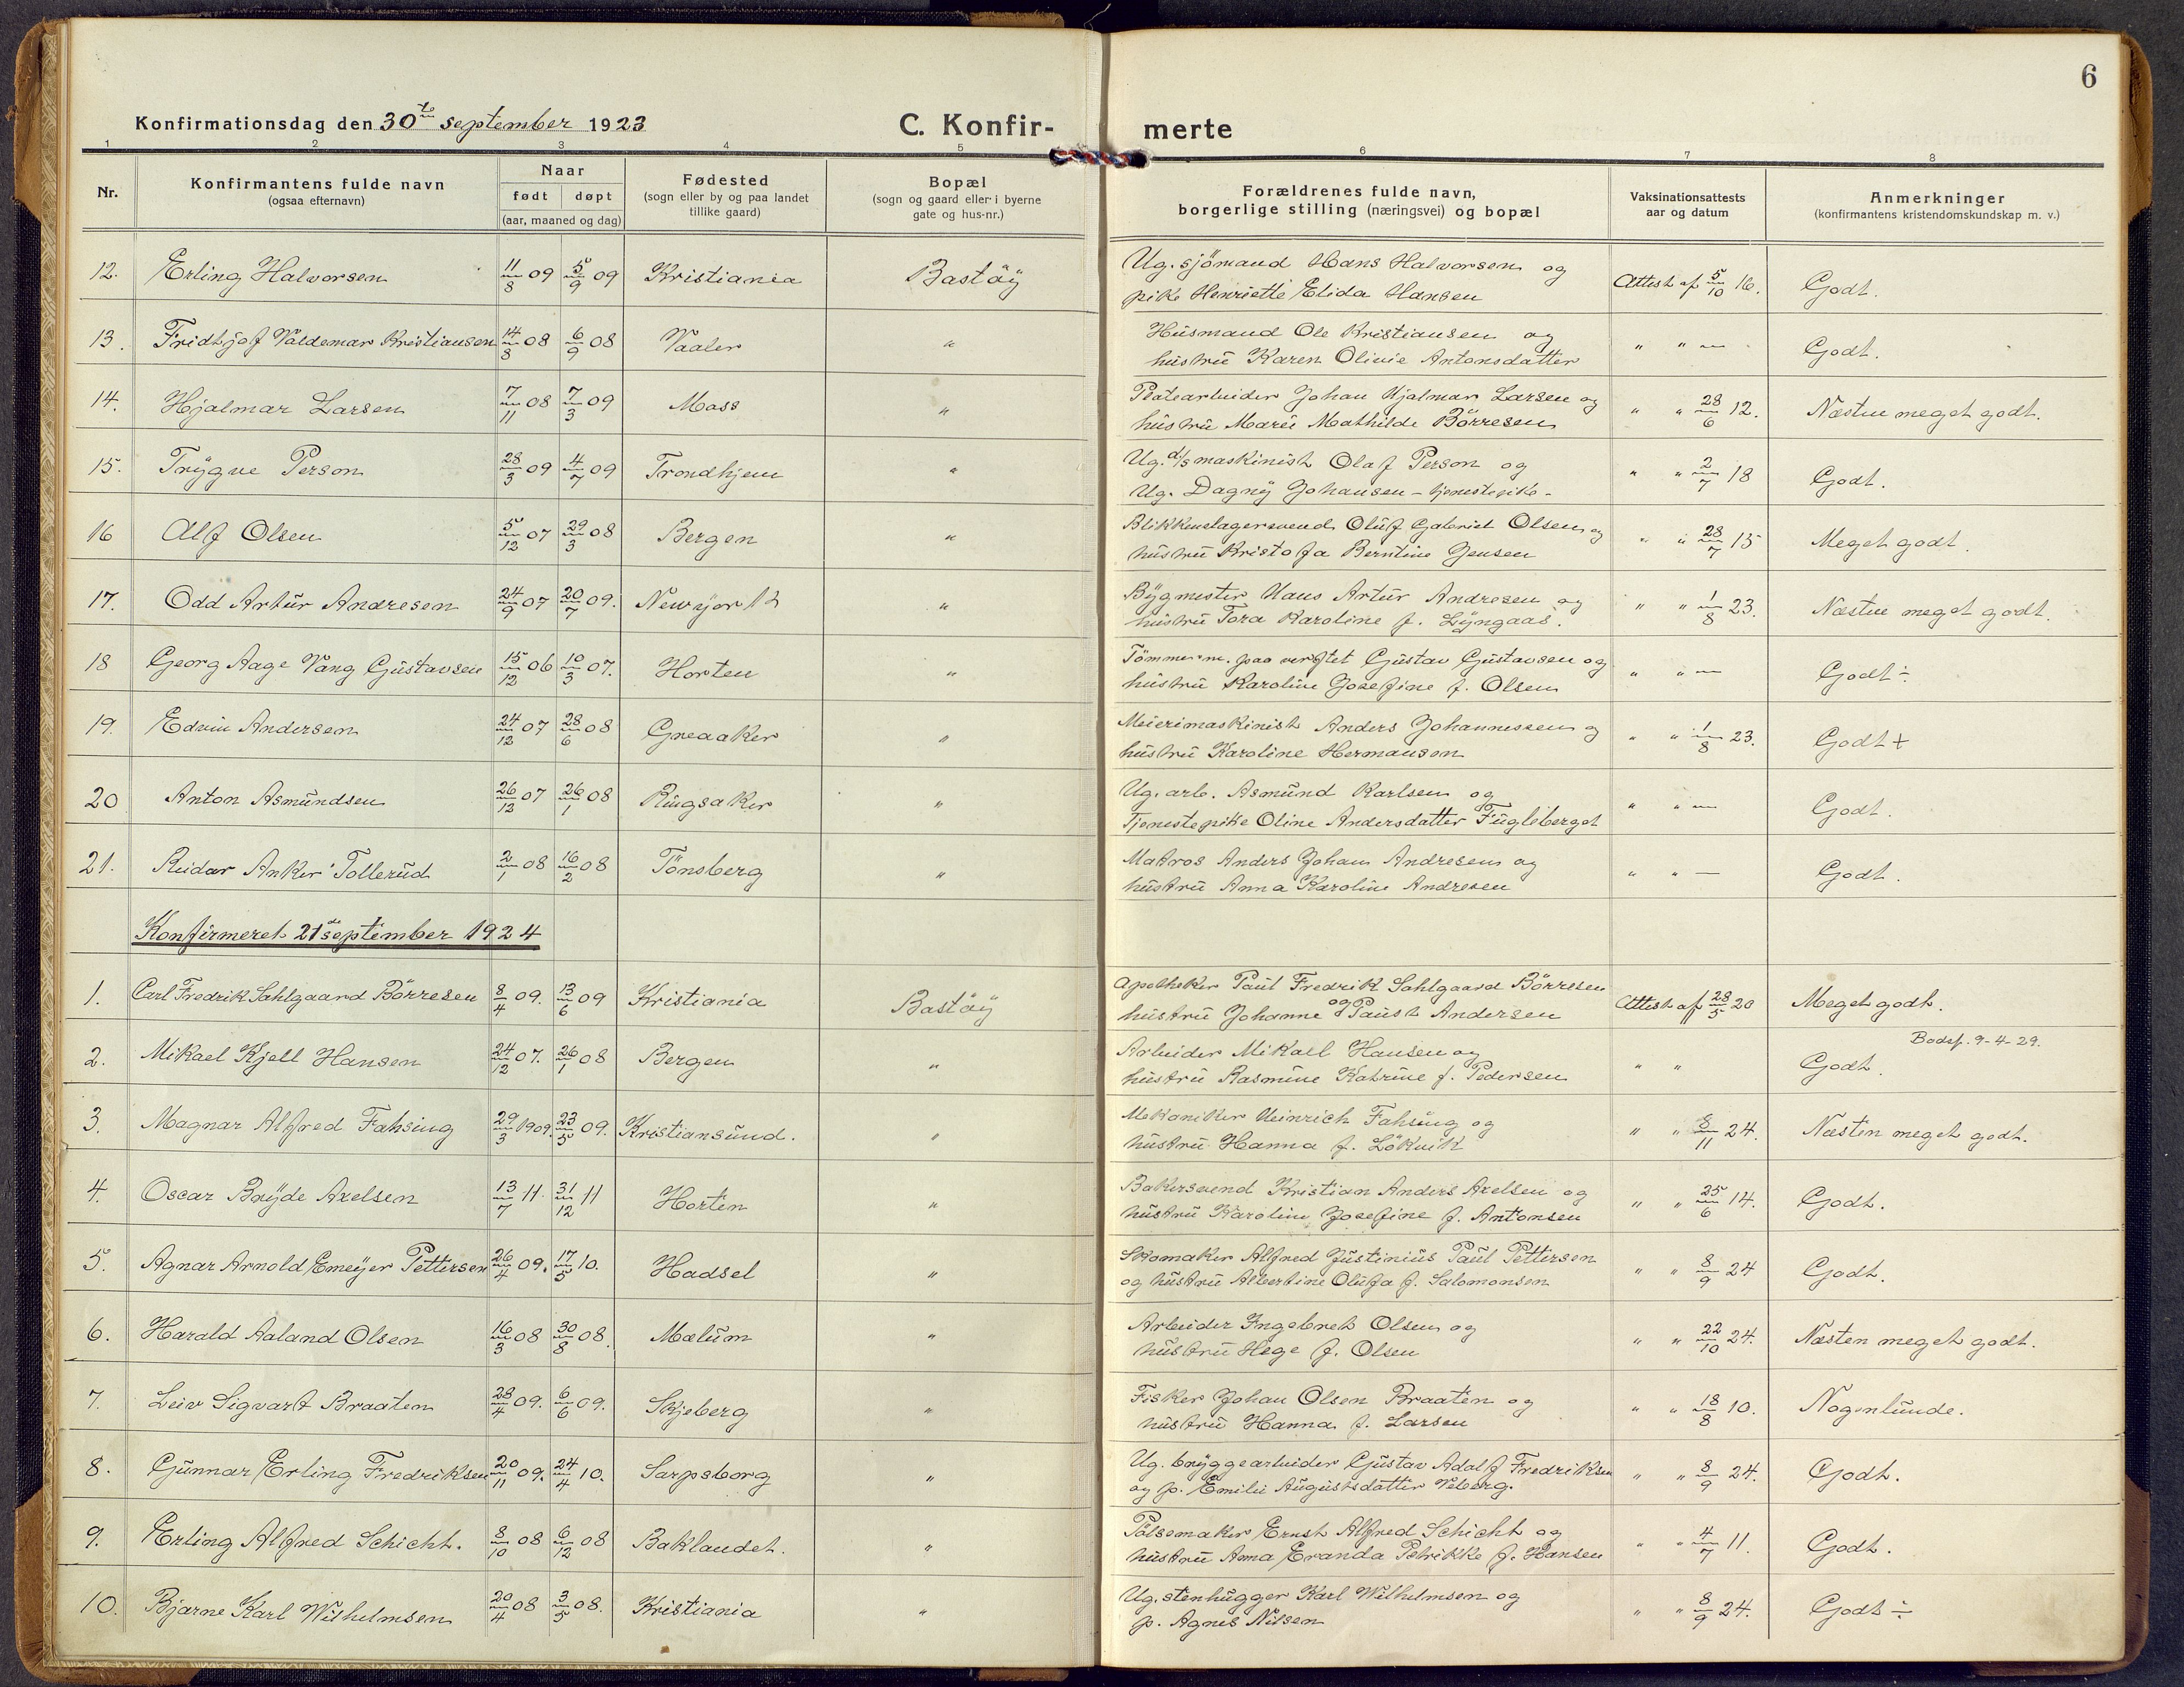 6
Konfirmationsdag den 30te september 1923 C. Konfir- merte
1 2 3 4 5 6 7 8
Nr. Konfirmantens fulde navn (ogsaa efternavn) Naar født døpt (aar, maaned og dag) Fødested (sogn eller by og paa landet tillike gaard) Bopæl (sogn og gaard eller i byerne gate og hus-nr.) Forældrenes fulde navn, borgerlige stilling (næringsvei) og bopæl Vaksinationsattests aar og datum Anmerkninger (konfirmantens kristendomskundskap m. v.)
12. Erling Halvorsen 11/8 09 5/9 09 Kristiania Bastøy Ug. sjömand Hans Halvorsen og Attest af 5/10 16. Godt.
pike Henriette Elida Hansen
13. Fridtjof Valdemar Kristiansen 14/8 08 6/9 08 Vaaler " Husmand Ole Kristiansen og " " — Godt.
hustru Karen Olivie Antonsdatter
14. Hjalmar Larsen 7/11 08 7/3 09 Moss " Platearbeider Johan Hjalmar Larsen og " " 28/6 12. Næsten meget godt.
hustru Marie Mathilde Börresen
15. Trygve Person 28/3 09 4/7 09 Trondhjem " Ug. d/s maskinist Olaf Person og " " 2/7 18 Godt.
Ug. Dagny Johansen - tjenestepike -
16 Alf Olsen 5/12 07 29/3 08 Bergen " Blikkenslagersvend Oluf Gabriel Olsen og " " 28/7 15 Meget godt.
hustru Kristofa Berntine Jensen
17. Odd Artur Andresen 24/9 07 20/7 09. Newyork " Bygmester Hans Artur Andresen og " " 1/8 23. Næsten meget godt.
hustru Tora Karoline f. Lyngaas.
18 Georg Aage Vang Gustavsen 15/12 06 10/3 07. Horten " Tömmerm. paa verftet Gustav Gustavsen og " " — Godt ÷
hustru Karoline Josefine f. Olsen
19. Edvin Andersen 24/12 07 28/6 08 Greaaker " Meierimaskinist Anders Johannessen og " " 1/8 23. Godt +
hustru Karoline Hermansen
20 Anton Asmundsen 26/12 07 26/1 08 Ringsaker " Ug. arb. Asmund Karlsen og " " — Godt.
Tjenestepike Oline Andersdatter Fugleberget
21. Reidar Anker Tollerud 2/1 08 16/2 08 Tönsberg " Matros Anders Johan Andresen og " " — Godt.
hustru Anna Karoline Andresen
Konfirmeret 21de september 1924
1. Carl Fredrik Sahlgaard Börresen 8/4 09. 13/6 09 Kristiania Bastøy Apotheker Paul Fredrik Sahlgaard Börresen Attest af 28/5 20 Meget godt.
hustru Johanne og Paust Andersen
2. Mikael Kjell Hansen 24/12 07. 26/1 08 Bergen " Arbeider Mikael Hansen og " " Godt. Bodsf. 9-4-29.
hustru Rasmine Katrine f. Pedersen
3. Magnar Alfred Fahsing 29/3 1909. 23/5 09. Kristiansund. " Mekaniker Heinrich Fahsing og " " 8/11 24. Næsten meget godt.
hustru Hanna f. Lökvik
4. Oscar Bryde Axelsen 13/7 11. 31/12 11 Horten " Bakersvend Kristian Anders Axelsen og " " 25/6 14. Godt.
hustru Karoline Josefine f. Antonsen
5. Agnar Arnold Emeyer Pettersen 26/4 09. 17/5 10. Hadsel " Skomaker Alfred Justinius Paul Pettersen " " 8/9 24 Godt.
og hustru Albertine Olufa f. Salomonsen
6. Harald Aaland Olsen 16/3 08 30/8 08. Mælum " Arbeider Ingebret Olsen og " " 22/10 24. Næsten meget godt.
hustru Hege f. Olsen
7. Leiv Sigvart Braaten 28/4 09. 6/6 09. Skjeberg " Fisker Johan Olsen Braaten og " " 18/8 10. Nogenlunde.
hustru Hanna f. Larsen
8. Gunnar Erling Fredriksen 20/11 09. 24/4 10. Sarpsborg " Ug. bryggearbeider Gustav Adolf Fredriksen " " 8/9 24. Godt.
og p. Emilie Augustsdatter Veberg.
9. Erling Alfred Schicht. 8/10 08 6/12 08 Baklandet. " Pölsemaker Ernst Alfred Schicht og " " 4/7 11. Godt.
hustru Anna Eranda Petrikke f. Hansen
10. Bjarne Karl Wilhelmsen 20/4 08 3/5 08. Kristiania " Ug. stenhugger Karl Wilhelmsen og " " 8/9 24. Godt ÷
p. Agnes Nilsen